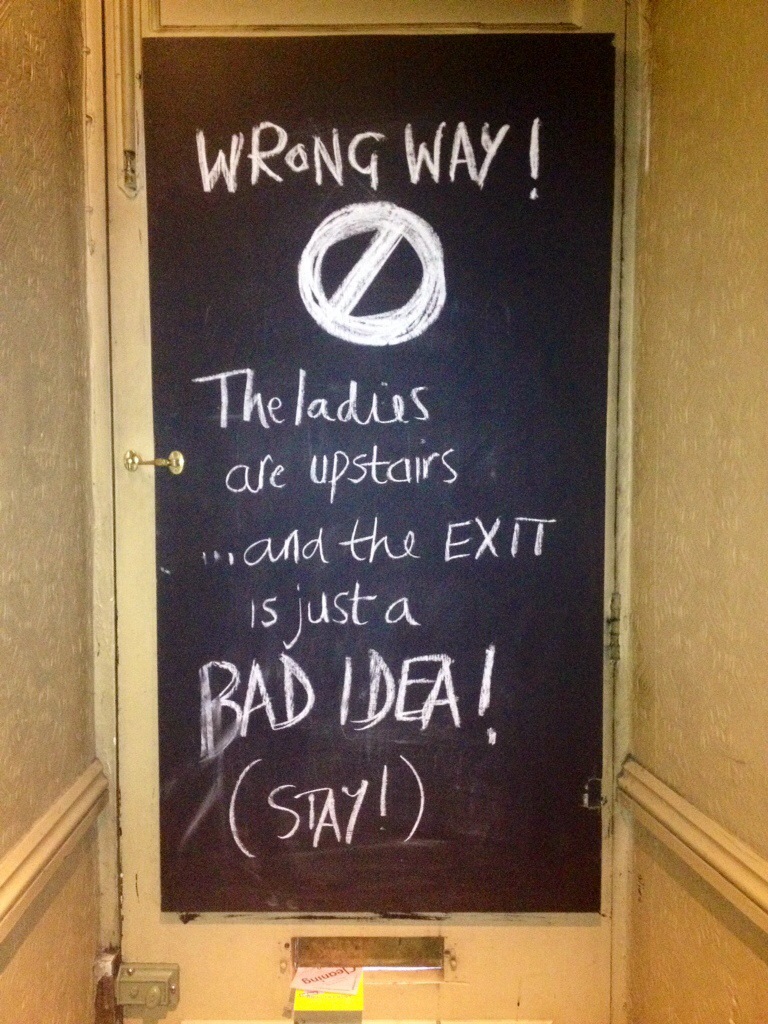 WRONG WAY!
The ladies
are upstairs
...and the EXIT
is just a
BAD IDEA!
(STAY!)
Cleaning